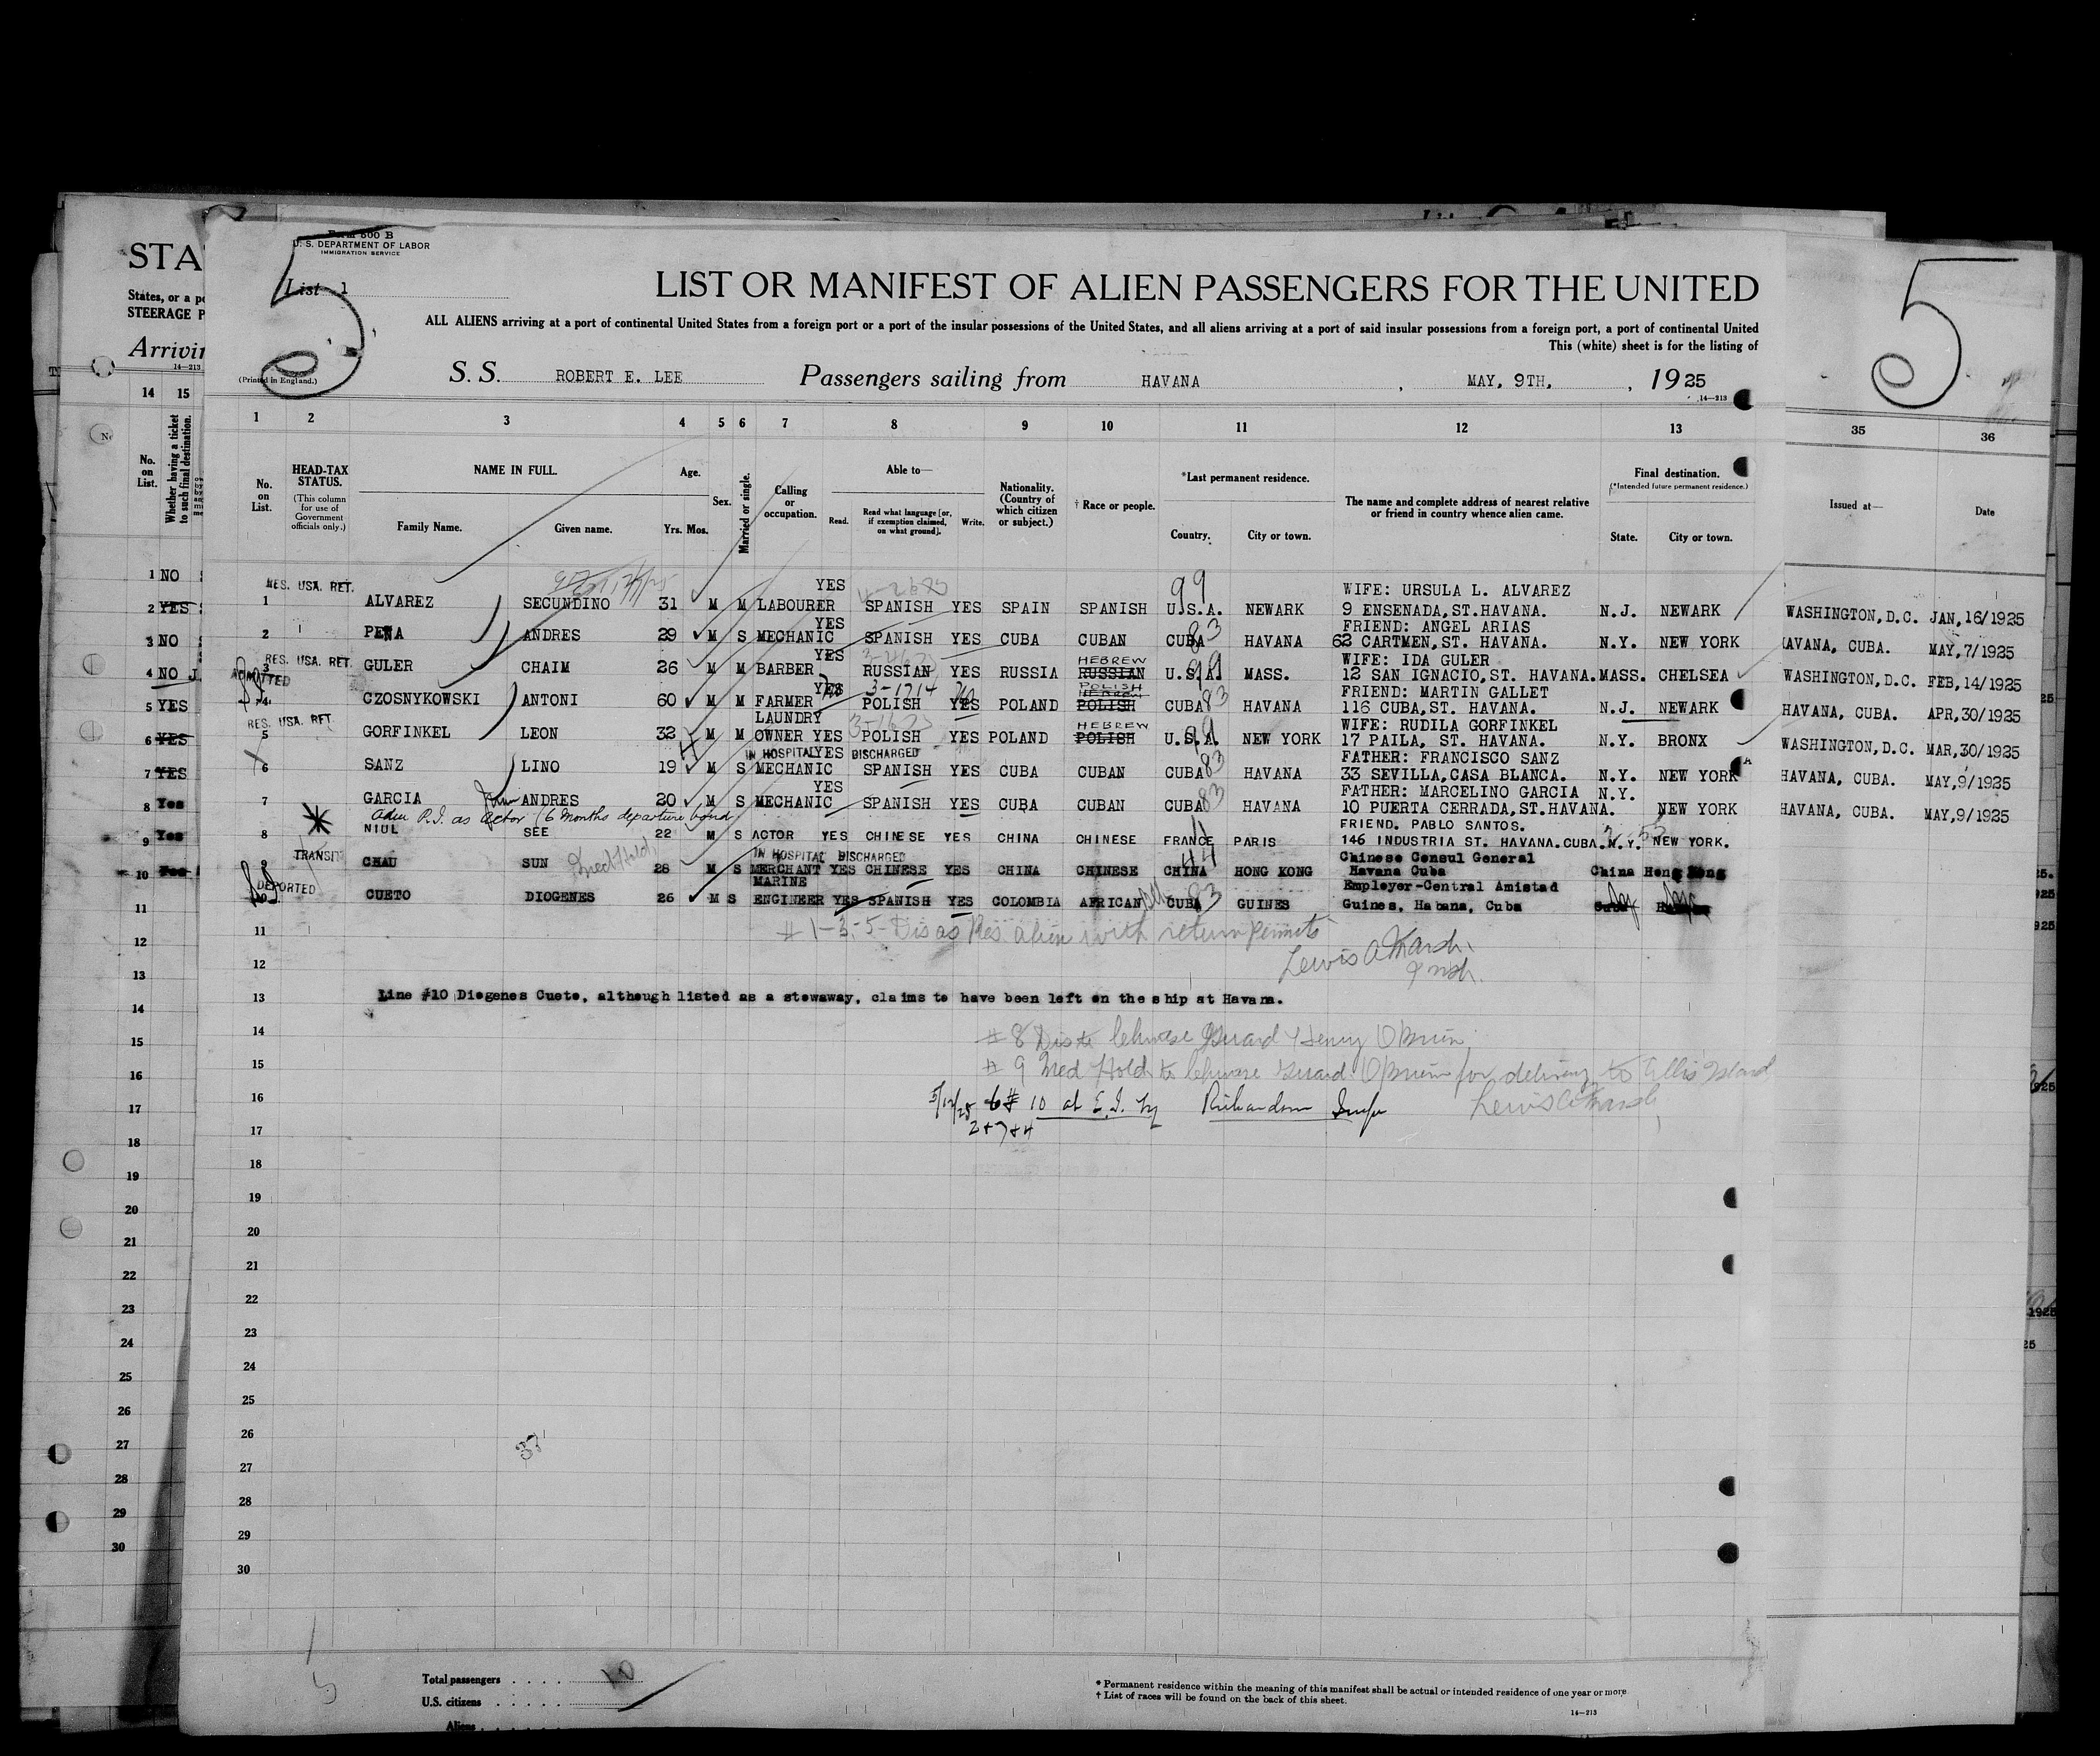 Form 500 B
U. S. DEPARTMENT OF LABOR
IMMIGRATION SERVICE
List 1
5
5
STA
States, or a po
STEERAGE P
Arrivin
14—213
LIST OR MANIFEST OF ALIEN PASSENGERS FOR THE UNITED
ALL ALIENS arriving at a port of continental United States from a foreign port or a port of the insular possessions of the United States, and all aliens arriving at a port of said insular possessions from a foreign port, a port of continental United
This (white) sheet is for the listing of
(Printed in England.)
S. S. ROBERT E. LEE Passengers sailing from HAVANA , MAY, 9TH, , 1925
14—213
14 15 1 2 3 4 5 6 7 8 9 10 11 12 13 35 36
No. on List.
Whether having a ticket to such final destination.
No. on List.
HEAD-TAX STATUS.
(This column for use of Government officials only.)
NAME IN FULL.
Family Name. Given name.
Age.
Yrs. Mos.
Sex.
Married or single.
Calling or occupation.
Able to—
Read. Read what language [or, if exemption claimed, on what ground]. Write.
Nationality. (Country of which citizen or subject.)
† Race or people.
*Last permanent residence.
Country. City or town.
The name and complete address of nearest relative or friend in country whence alien came.
Final destination.
(*Intended future permanent residence.)
State. City or town.
Issued at— Date
RES. USA. RET. YES 99 WIFE: URSULA L. ALVAREZ
1 ALVAREZ SECUNDINO 31 M M LABOURER SPANISH YES SPAIN SPANISH U.S.A. NEWARK 9 ENSENADA,ST.HAVANA. N.J. NEWARK WASHINGTON,D.C. JAN,16/1925
YES 83 FRIEND: ANGEL ARIAS
2 PENA ANDRES 29 M S MECHANIC SPANISH YES CUBA CUBAN CUBA HAVANA 62 CARTMEN,ST. HAVANA. N.Y. NEW YORK HAVANA, CUBA. MAY,7/1925
RES. USA. RET. YES HEBREW 99 WIFE: IDA GULER
3 GULER CHAIM 26 M M BARBER RUSSIAN YES RUSSIA RUSSIAN U.S.A. MASS. 12 SAN IGNACIO,ST. HAVANA. MASS. CHELSEA WASHINGTON,D.C. FEB,14/1925
ADMITTED YES 3-1714 POLISH HEBREW FRIEND: MARTIN GALLET
4 CZOSNYKOWSKI ANTONI 60 M M FARMER POLISH YES POLAND POLISH CUBA 83 HAVANA 116 CUBA,ST. HAVANA. N.J. NEWARK HAVANA, CUBA. APR,30/1925
RES. USA. RET. LAUNDRY HEBREW 99 WIFE: RUDILA GORFINKEL
5 GORFINKEL LEON 32 M M OWNER YES POLISH YES POLAND POLISH U.S.A. NEW YORK 17 PAILA, ST. HAVANA. N.Y. BRONX WASHINGTON,D.C. MAR,30/1925
IN HOSPITAL YES DISCHARGED 83 FATHER: FRANCISCO SANZ
6 SANZ LINO 19 M S MECHANIC SPANISH YES CUBA CUBAN CUBA HAVANA 33 SEVILLA,CASA BLANCA. N.Y. NEW YORK HAVANA, CUBA. MAY,9/1925
YES FATHER: MARCELINO GARCIA N.Y.
7 GARCIA ANDRES 20 M S MECHANIC SPANISH YES CUBA CUBAN CUBA 83 HAVANA 10 PUERTA CERRADA,ST.HAVANA. NEW YORK HAVANA, CUBA. MAY,9/1925
Adm P.I. as actor (6 months departure bond)
FRIEND. PABLO SANTOS.
8 NIUL SEE 22 M S ACTOR YES CHINESE YES CHINA CHINESE FRANCE PARIS 146 INDUSTRIA ST. HAVANA.CUBA. N.Y. NEW YORK.
TRANSIT IN HOSPITAL DISCHARGED 44 Chinese Consul General
9 CHAU SUN 28 M S MERCHANT YES CHINESE YES CHINA CHINESE CHINA HONG KONG Havana Cuba China Hong Kong
DEPORTED MARINE Employer-Central Amistad
10 CUETO DIOGENES 26 M S ENGINEER YES SPANISH YES COLOMBIA AFRICAN CUBA 83 GUINES Guines, Habana, Cuba Cuba
# 1-3-5- Dis as Res alien with return permits
Lewis A Marsh
Insp.
Line #10 Diogenes Cueto, although listed as a stowaway, claims to have been left on the ship at Havana.
# 8 Dis to Chinese Guard Henry OBrien
# 9 Med Hold to Chinese Guard OBrien for delivery to Ellis Island
Lewis A Marsh
5/12/25 6 # 10 at E.I. by Richardson Insp
2 + 7 + 4
1 NO
2 YES
3 NO
4 NO
5 YES
6 YES
7 YES
8 Yes
9 Yes
10 Yes
11
12
13
14
15
16
17
18
19
20
21
22
23
24
25
26
27
28
29
30
11
12
13
14
15
16
17
18
19
20
21
22
23
24
25
26
27
28
29
30
37
Total passengers 10
U.S. citizens
Aliens
* Permanent residence within the meaning of this manifest shall be actual or intended residence of one year or more.
† List of races will be found on the back of this sheet.
14—213